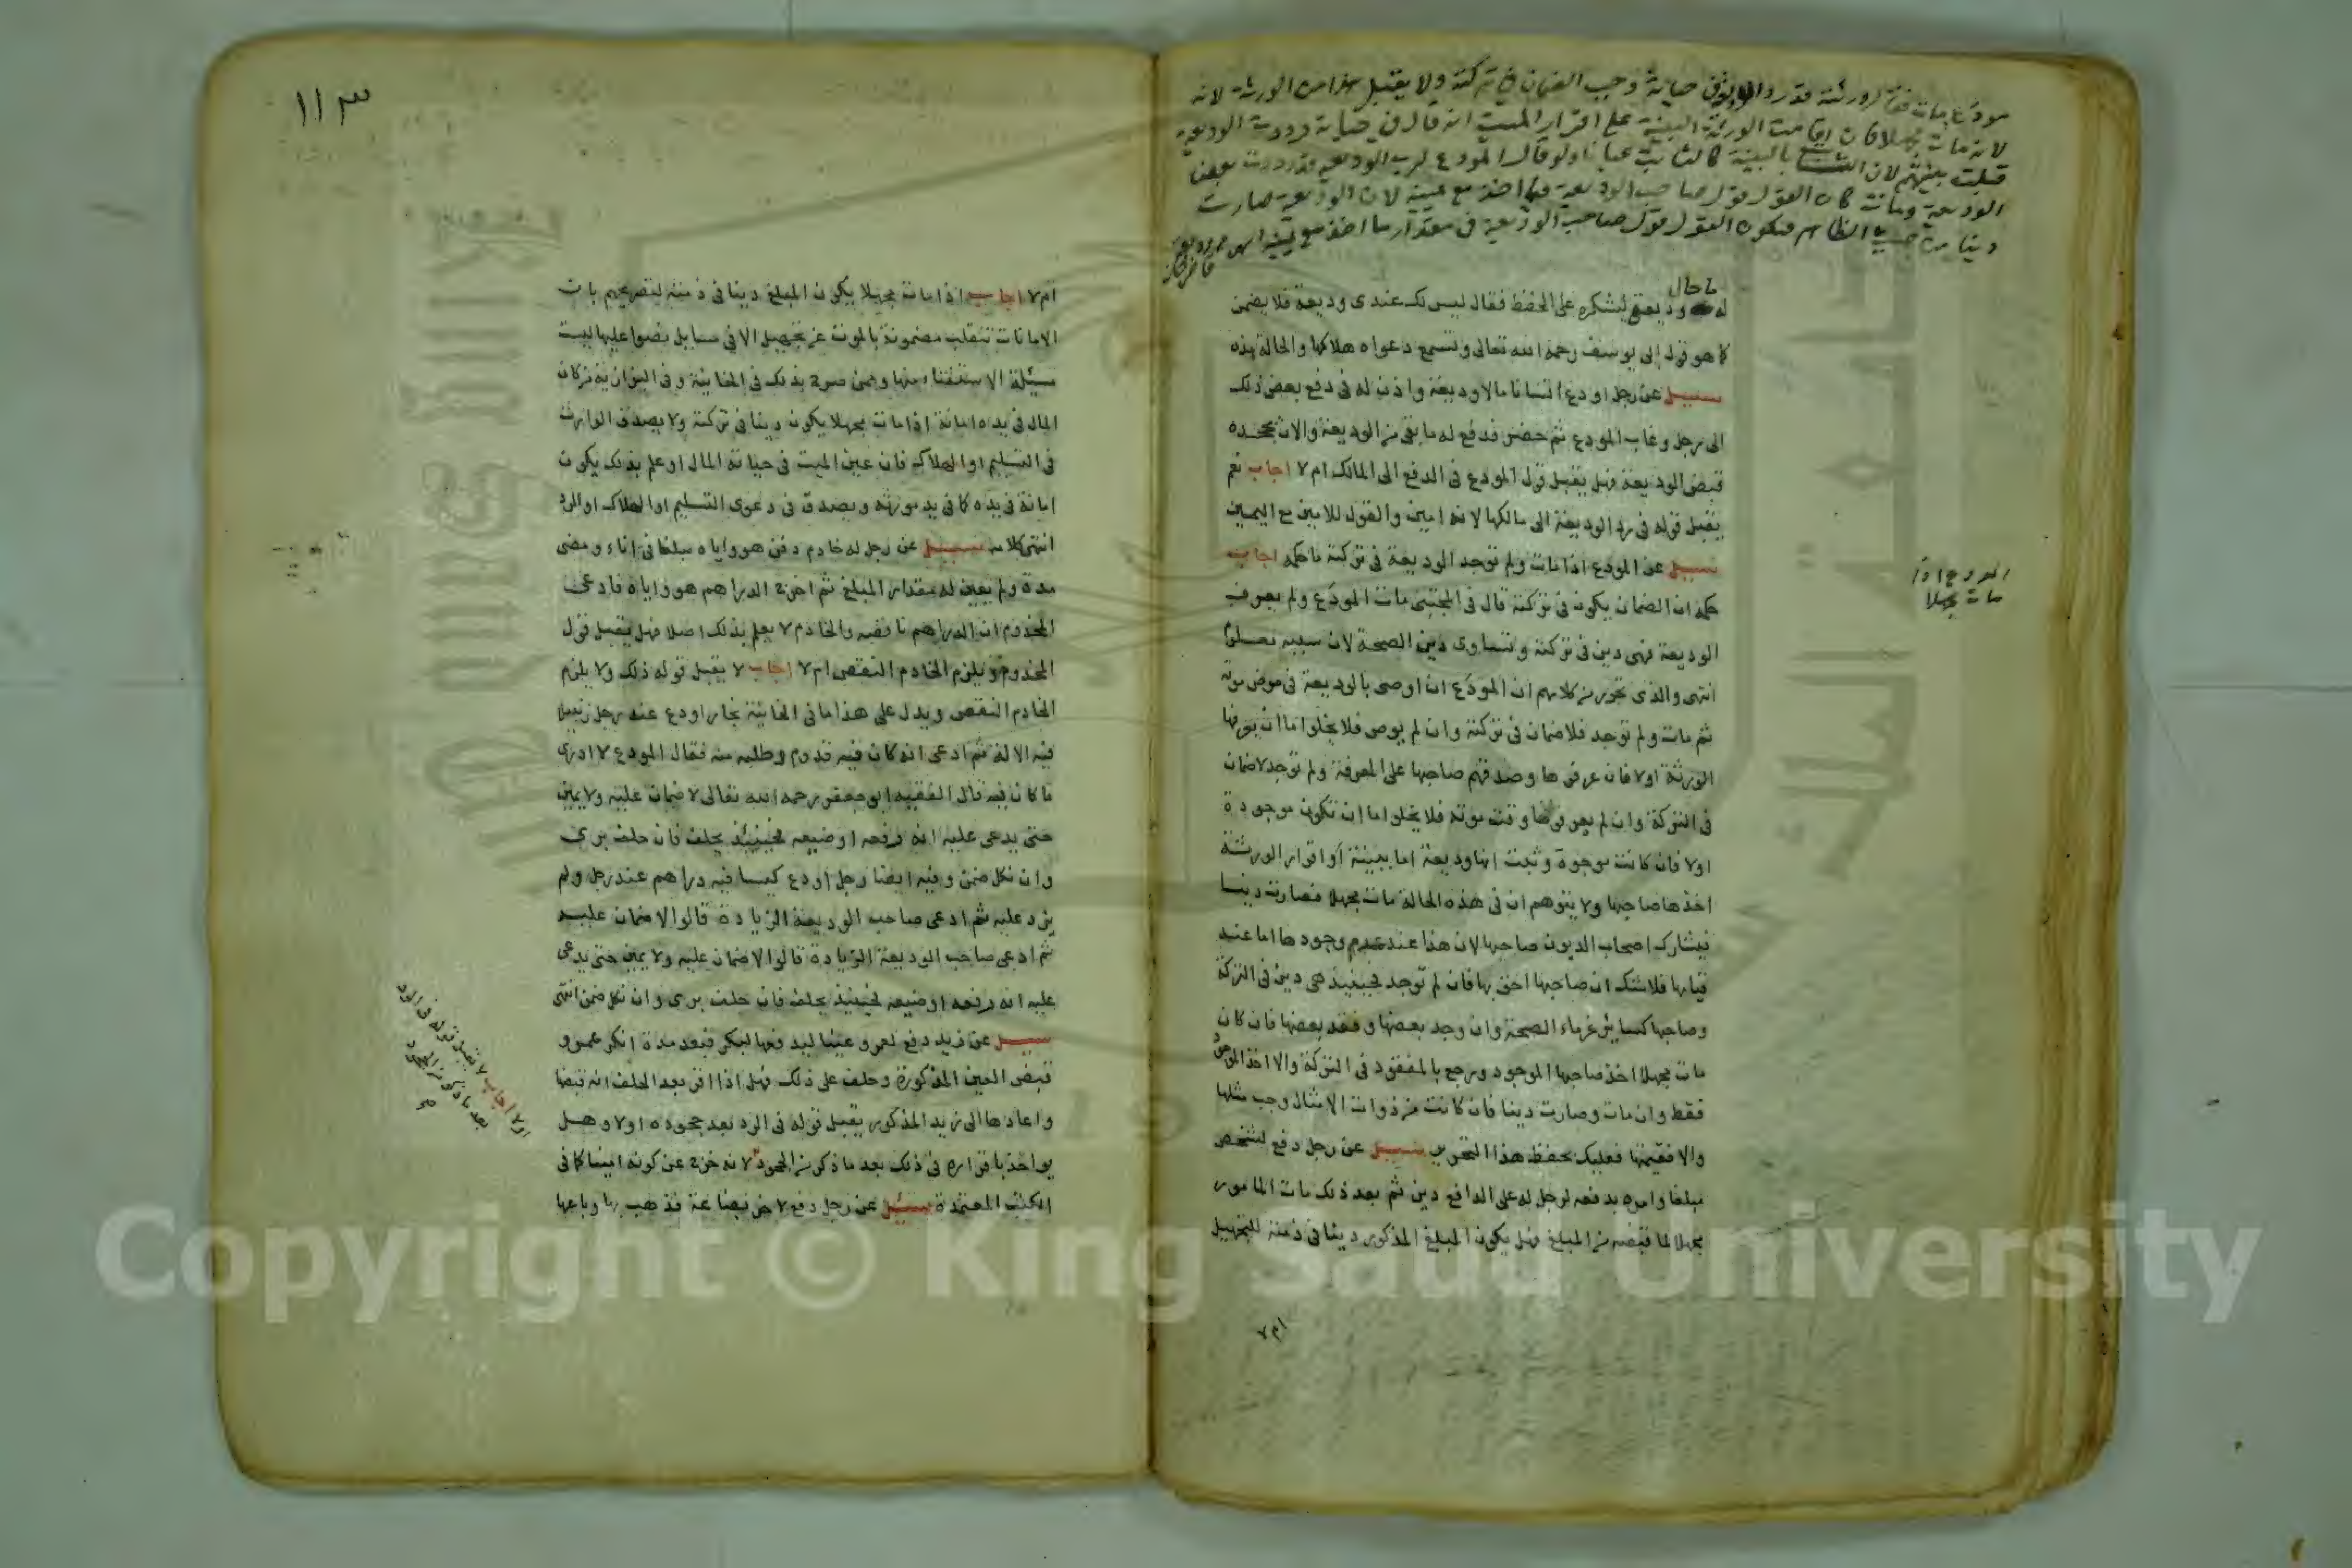 مودع مات فقال ورثته قد رد الوديعة في حياته وجب الضمان في تركته ولا يقبل هذا من الورثة لانه
لانه مات مجهلا فان اقامت الورثة البينة على اقرار الميت انه قال في حياته رددت الوديعة
قبلت بينتهم لان الثابت بالبينة كالثابت عيانا ولو قال المودع لرب الوديعة قد رددت بعض
الوديعة ومات كان القول قول صاحب الوديعة فيما اخذ مع يمينه لان الوديعة صارت
دينا من حيث الظاهر فيكون القول قول صاحب الوديعة في مقدار ما اخذ مع يمينه
قاضيخان
ما حال
له وديعتي ليشكره على الحفظ فقال ليس لك عندي وديعة فلا يضمن
كما هو قول ابي يوسف رحمه الله تعالى وتسمع دعواه هلاكها والحالة هذه
سئيل عن رجل اودع انسانا مالا وديعة واذن له في دفع بعض ذلك
الى رجل وغاب المودع ثم حضر فدفع له ما بقي من الوديعة والان يجحده
قبض الوديعة فهل يقبل قول المودع في الدفع الى المالك ام لا اجاب نعم
يقبل قوله في رد الوديعة الى مالكها لانه امين والقول للامين مع اليمين
سئيل عن المودع اذا مات ولم توجد الوديعة في تركته ما حكمه اجاب
حكمه ان الضمان يكون في تركته قال في المجتبى مات المودع ولم يعرف
الوديعة فهي دين في تركته وتساوى دين الصحة لان سببه معلوم
انتهى والذي تحرر من كلامهم ان المودع ان اوصى بالوديعة في مرض موته
ثم مات ولم توجد فلا ضمان في تركته وان لم يوص فلا يخلو اما ان يعرفها
الورثة اولا فان عرفوها وصدقهم صاحبها على المعرفة ولم توجد لا ضمان
في التركة وان لم يعرفوها وقت موته فلا يخلو اما ان تكون موجودة
اولا فان كانت موجودة وثبت انها وديعة اما ببينة او اقرار الورثة
اخذها صاحبها ولا يتوهم ان في هذه الحالة مات مجهلا فصارت دينا
فيشارك اصحاب الديون صاحبها لان هذا عند عدم وجودها اما عند
قيامها فلا شك ان صاحبها احق بها فان لم توجد فحينئذ هي دين في التركة
وصاحبها كسائر غرماء الصحة وان وجد بعضها وفقد بعضها فان كان
مات مجهلا اخذ صاحبها الموجود ورجع بالمفقود في التركة والا اخذ الموجود
فقط وان مات وصارت دينا فان كانت من ذوات الامثال وجب مثلها
والا فقيمتها فعليك بحفظ هذا التحرير سئيل عن رجل دفع لشخص
مبلغا وامره بدفعه لرجل له على الدافع دين ثم بعد ذلك مات المامور
مجهلا لما قبضه من المبلغ فهل يكون المبلغ المذكور دينا في ذمته للتجهيل
ام لا
المودع اذا
مات مجهلا
١١٣
ام لا اجاب اذا مات مجهلا يكون المبلغ دينا في ذمته لتصريحهم بان
الامانات تنقلب مضمونة بالموت عن تجهيل الا في مسايل نصوا عليها ليست
مسئلة الاستفتاء منها وممن صرح بذلك في الخانية وفي البزازية من كان
المال في يده امانة اذا مات مجهلا يكون دينا في تركته ولا يصدق الوارث
في التسليم او الهلاك فان عين الميت في حياته المال او علم بذلك يكون
امانة في يده كما في يد مورثه ويصدق في دعوى التسليم او الهلاك او الرد
انتهى كلامه سئيل عن رجل له خادم دفن هو واياه مبلغا في اناء ومضى
مدة ولم يعين له مقدار المبلغ ثم اخرج الدراهم هو واياه فادعى
المخدوم ان الدراهم ناقصه والخادم لا يعلم بذلك اصلا فهل يقبل قول
المخدوم ويلزم الخادم النقص ام لا اجاب لا يقبل قوله ذلك ولا يلزم
الخادم النقص ويدل على هذا ما في الخانية نجار اودع عند رجل زنبيلا
فيه الالة ثم ادعى انه كان فيه قدوم وطلبه منه فقال المودع لا ادري
ما كان فيه قال الفقيه ابو جعفر رحمه الله تعالى لا ضمان عليه ولا يمين
حتى يدعى عليه انه رفعه او ضيعه فحينئذ يحلف فان حلف برى
وان نكل ضمن وفيه ايضا رجل اودع كيسا فيه دراهم عند رجل ولم
يزد عليه ثم ادعى صاحب الوديعة الزيادة قالوا لا ضمان عليه
ثم ادعى صاحب الوديعة الزيادة قالوا لا ضمان عليه ولا يمين حتى يدعى
عليه انه رفعه او ضيعه فحينئذ يحلف فان حلف برى وان نكل ضمن انتهى
سئيل عن زيد دفع لعمرو عينا ليدفعها لبكر فبعد مدة انكر عمرو
قبض العين المذكورة وحلف على ذلك فهل اذا اقر بعد الحلف انه قبضها
واعادها الى زيد المذكور يقبل قوله في الرد بعد جحوده اولا وهل
يواخذ باقراره في ذلك بعد ما ذكر من الجحود لانه خرج عن كونه امينا كما في
الكتب المعتمدة سئيل عن رجل دفع لاخر بضاعة فذهب بها وباعها
اولا اجاب لا يقبل قوله في الرد
بعد ما ذكر من الجحود
صح
Copyright © King Saud University